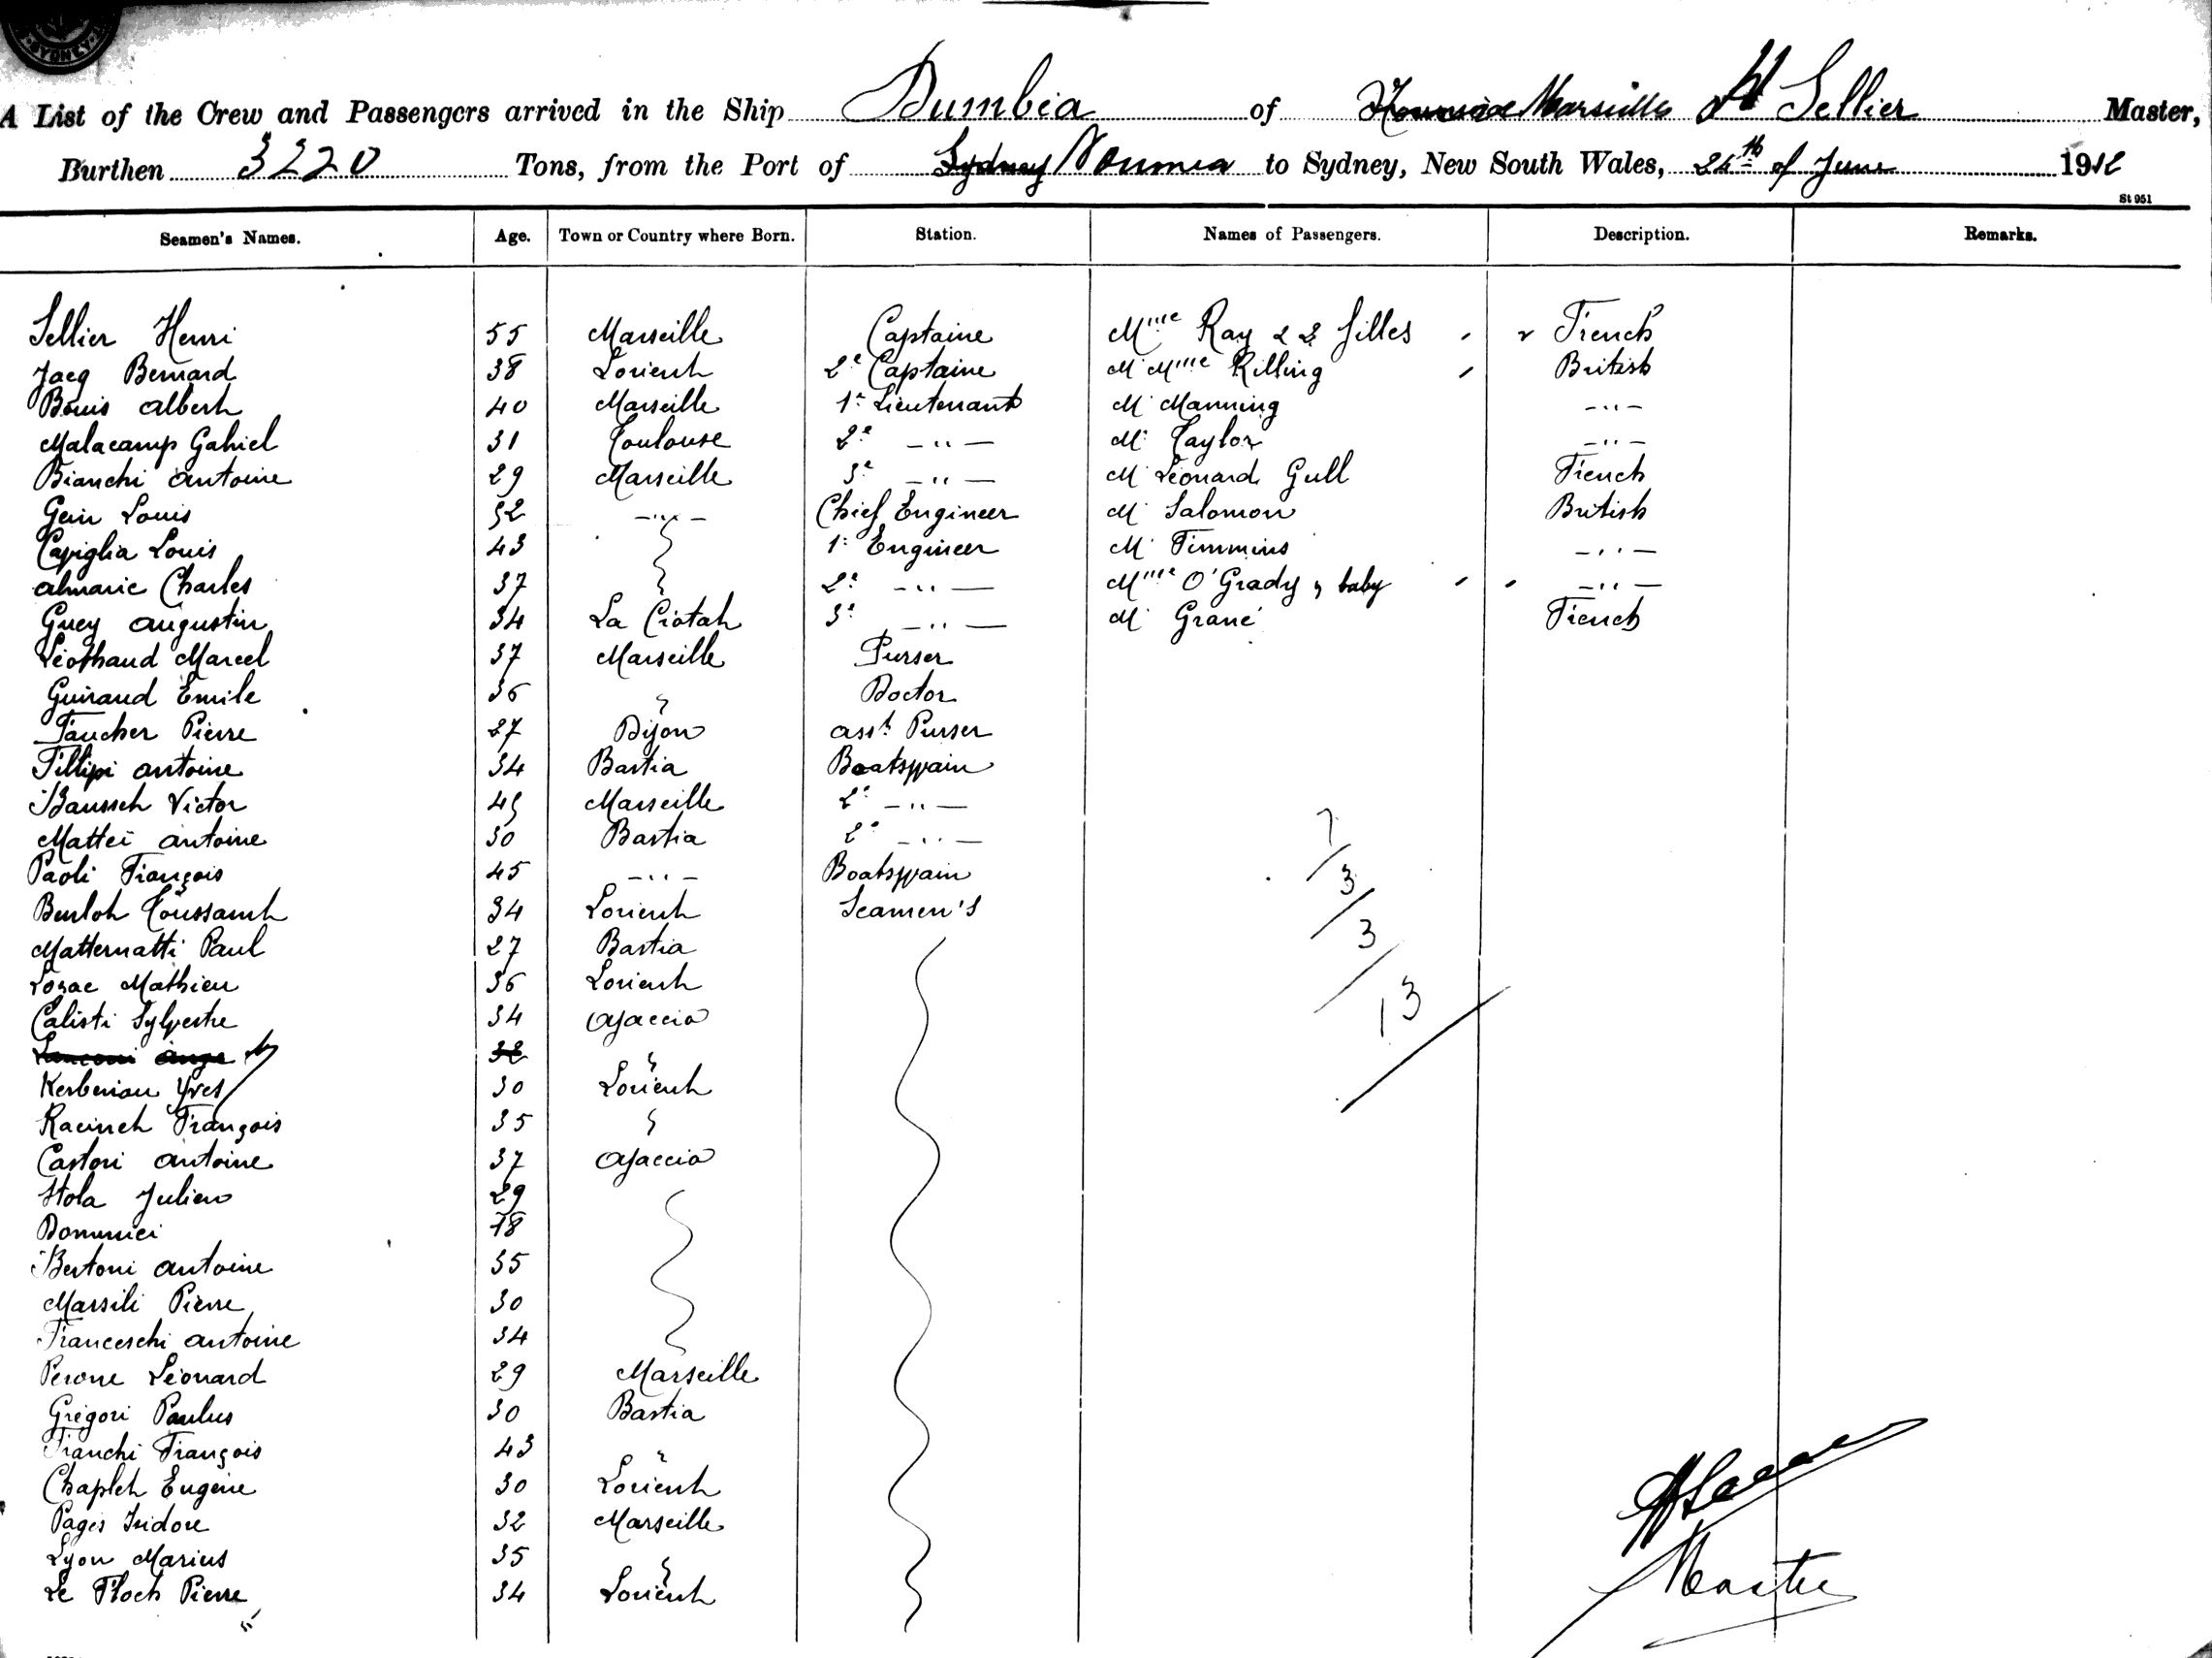 SYDNEY
A List of the Crew and Passengers arrived in the Ship Dumbéa of Marseille H Sellier Master,
Burthen 3220 Tons, from the Port of Sydney Noumea to Sydney, New South Wales, of June 191
St 951
Seamen's Names. Age. Town or Country where Born. Station. Names of Passengers. Description. Remarks.
Sellier Henri 55 Marseille Captaine Mme Ray & 2 filles French
Jaeg Bernard 38 Lorient 2e Captaine M Mme Rilling British
Bouis Albert 40 Marseille 1r Lieutenant M Manning -"-
Malacamp Gabriel 31 Toulouse 2e -"- M Taylor -"-
Bianchi Antoine 29 Marseille 3e -"- M Léonard Gull French
Gein Louis 52 -"- Chief Engineer M Salomon British
Capiglia Louis 43 1r Engineer M Timmins -"-
Almaric Charles 37 2e -"- Mme O'Grady & baby -"-
Guey Augustin 34 La Ciotat 3e -"- M Grané French
Léothaud Marcel 37 Marseille Purser
Guiraud Emile 36 " Doctor
Faucher Pierre 27 Dijon Asst Purser
Fillipi Antoine 34 Bastia Boatswain
Victor 45 Marseille 2e -"-
Mattei Antoine 30 Bastia 2e -"-
Paoli François 45 -"- Boatswain
Toussaint 34 Lorient Seamen's
Matternatti Paul 27 Bastia
Lozac Mathieu 36 Lorient
Calisti Sylvestre 34 Ajaccio
Ange 32 "
Yves 30 Lorient
François 35 "
Castori Antoine 37 Ajaccio
Stola Julien 29
Dominici 18
Bertoni Antoine 35
Marsili Pierre 30
Franceschi Antoine 34
Perone Léonard 29 Marseille
Grégori Paulus 30 Bastia
Franchi François 43 "
Chaplet Eugène 30 Lorient
Pagès Isidore 32 Marseille
Lyon Marius 35 "
Le Floch Pierre 34 Lorient
7
3
3
13
Master